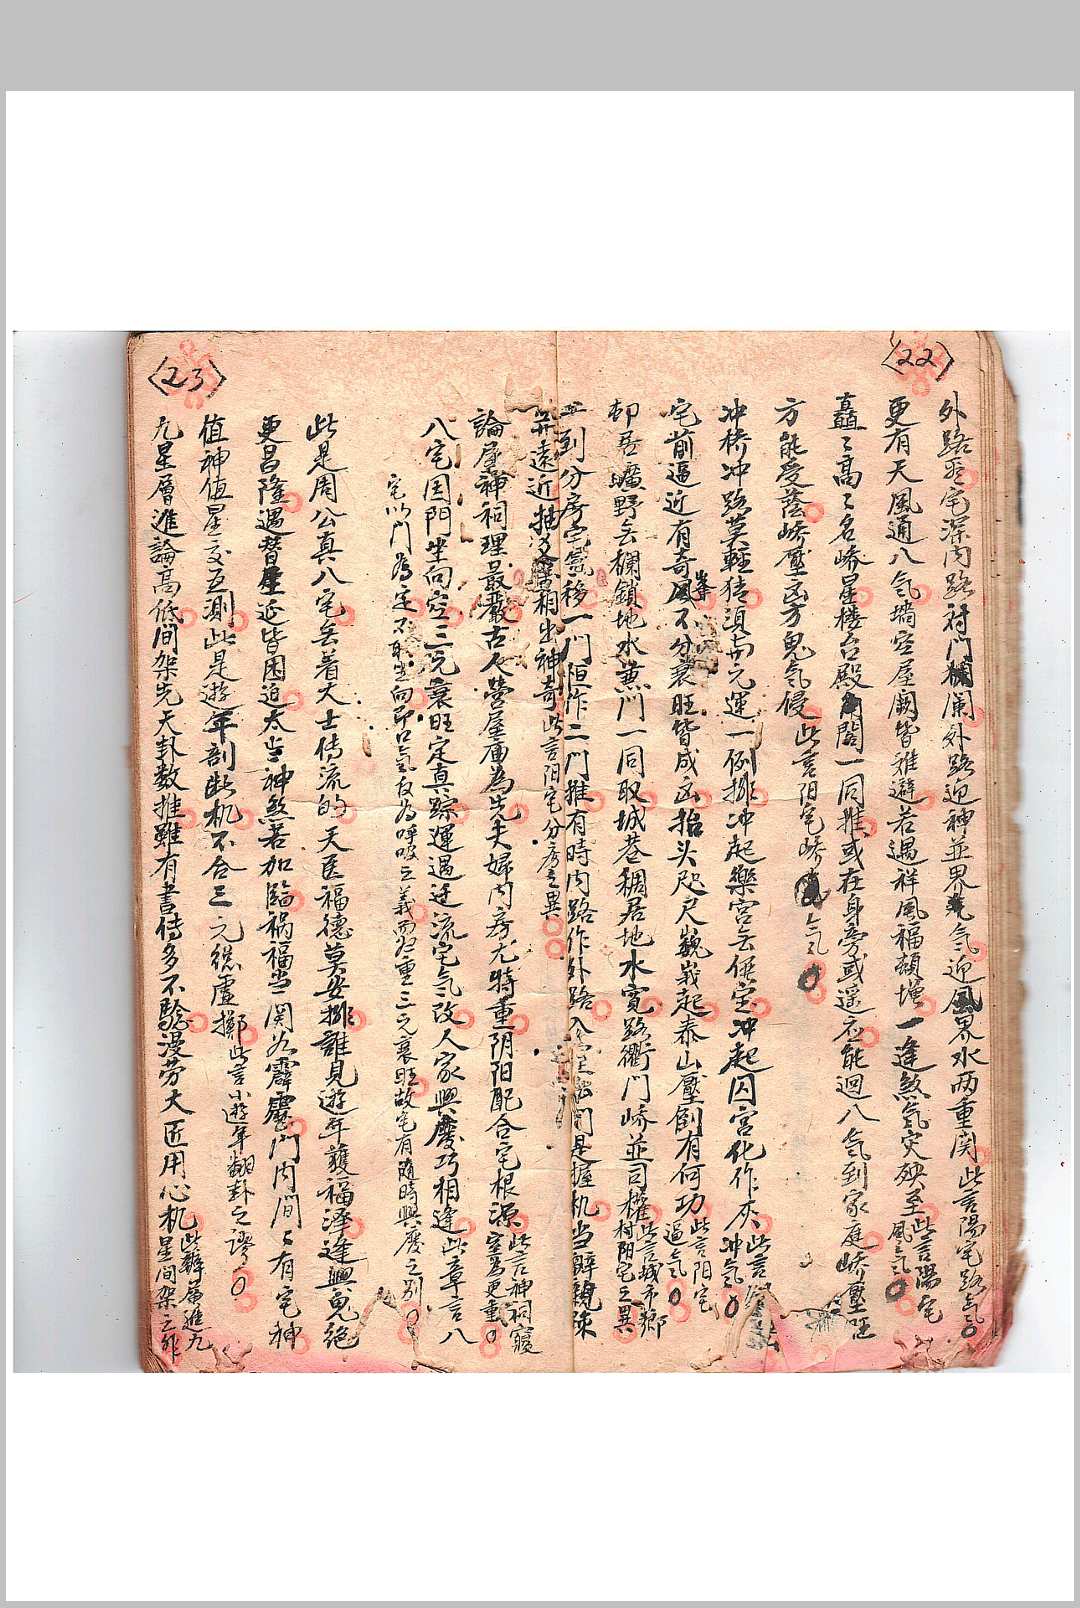 〈22〉
外路至宅深内路对門欄闌外路迎神並界氣迎風界水两重関此言陽宅路氣
更有天風通八气墙空屋闕皆难避若遇祥風福頻增一逢煞氣灾殃至此言陽宅風氣
矗矗高高名嶠星楼台殿閣一同推或在身旁或遥应能迴八氣到家庭嶠壓旺
方能受蔭嶠壓凶方鬼气侵此言阳宅嶠气
冲橋冲路莫輕猜須与元運一例排冲起樂宮无價宝冲起囚宮化作灰此言冲氣
宅前逼近有奇峯不分衰旺皆成凶抬头咫尺巍峩起泰山壓倒有何功此言阳宅逼气
却居曠野无欄鎖地水兼門一同取城巷稠居地水寬路衢門嶠並司權此言城市鄉村阳宅之異
一到分房宅氣移一門恒作二門推有時内路作外路入室私門是握机当辨親疎
并遠近抽爻換象出神奇此言阳宅分房之異
〈23〉
論屋神祠理最嚴古人營屋廟為先夫婦内房尤特重阴阳配合宅根源此言神祠寢室為更重
八宅因門坐向空三元衰旺定真踪運遇迁流宅气改人家興廢巧相逢此章言八
宅以門為定不取坐向即口气反為呼吸之義而归重三元衰旺故宅有随時興廢之别
此是周公真八宅无着大士傳流的天医福德莫安排誰見遊年獲福澤逢興鬼絶
更昌隆遇替生延皆困迫太歲神煞若加臨祸福当関如霹靂門内間間有宅神
值神值星交互測此是遊年剖断机不合三元総虛擲此言小遊年翻卦之謬
九星層進論高低間架先天卦数推雖有書传多不驗漫劳大匠用心机此辨層進九星間架之非